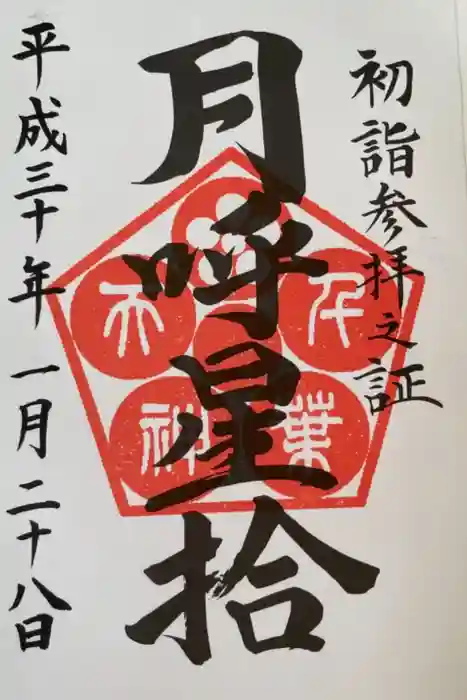 初詣参拝之証
月呼星拾
平成三十年 一月二十八日
千葉
天神